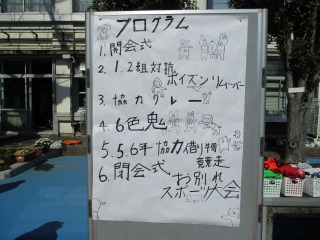 プログラム
1.開会式
2.1.2組対抗
ポイズンリムーバー
3.協力グレード
4.6色鬼
5.5.6年協力借り物
競走
6.閉会式
お別れ
スポーツ大会